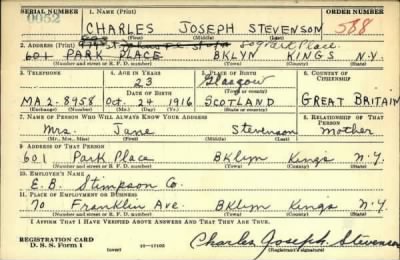 SERIAL NUMBER 1. NAME (Print) ORDER NUMBER
0052 CHARLES JOSEPH STEVENSON 588
(First) (Middle) (Last)
2. ADDRESS (Print)
601 PARK PLACE BKLYN KINGS N.Y.
(Number and street or R. F. D. number) (Town) (County) (State)
3. TELEPHONE 4. AGE IN YEARS 5. PLACE OF BIRTH 6. COUNTRY OF CITIZENSHIP
23 Glasgow
DATE OF BIRTH (Town or county)
MA 2-8958 Oct. 24 1916 SCOTLAND GREAT BRITAIN
(Exchange) (Number) (Mo.) (Day) (Yr.) (State or country)
7. NAME OF PERSON WHO WILL ALWAYS KNOW YOUR ADDRESS 8. RELATIONSHIP OF THAT PERSON
Mrs. Jane Stevenson mother
(Mr., Mrs., Miss) (First) (Middle) (Last)
9. ADDRESS OF THAT PERSON
601 Park Place BKlyn Kings N.Y.
(Number and street or R. F. D. number) (Town) (County) (State)
10. EMPLOYER'S NAME
E. B. Stimpson Co.
11. PLACE OF EMPLOYMENT OR BUSINESS
70 Franklin Ave. BKlyn Kings N.Y.
(Number and street or R. F. D. number) (Town) (County) (State)
I AFFIRM THAT I HAVE VERIFIED ABOVE ANSWERS AND THAT THEY ARE TRUE.
REGISTRATION CARD
D. S. S. Form 1 (over) 16-17105 Charles Joseph Stevenson
(Registrant's signature)